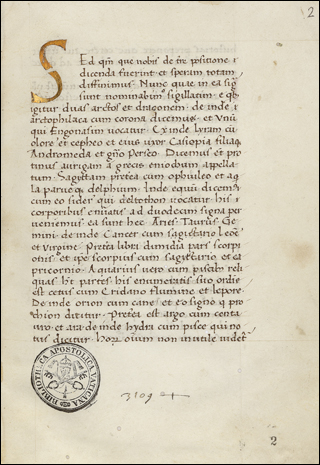 2
Sed qm̃ que nobis de tr̃e positione i
dicenda fuerint et speram totam
diffinimus Nunc quae in ea sig̃
sunt nominabim' sigillatim. e q̃b
igitur duas arctos et draconem. de inde i
arctophilaca cum corona dicemus et Vnũ
qui Engonasim uocatur Exinde lyram cu
olore et cepheo et eius uxor Casiopia filiaq
Andromeda et gño Perseo. Dicemus et pro
tinus aurigam a grecis eniochum appella
tum. Sagittam p̃terea cum ophiuleo et aq
la paruoq delphium. Inde equũ dicem'
cum eo sider qui deltothon uocatur his i
corporibus enũatis ad duodecim signa per
ueniemus ea sunt hec. Aries Taurus Ge
mini. de inde Cancer cum sagitario leõe
et Virgine Pretea libri dimidia pars scorpi
onis et ipse scorpius cum sagittario et ca
pricornio. Aquarius uero cum piscib; reli
quas ht partes his enumeratis suo ordie
est cetus cum Eridano flumine et lepore
De inde orion cum cane et eo signo q pro
chion dicitur. Preterea est argo cum centa
uro et ara de inde hydra cum pisce qui no
tius dicitur. Horũ oĩum non inutile uidet
BIBLIOTHECA APOSTOLICA VATICANA
3109
2